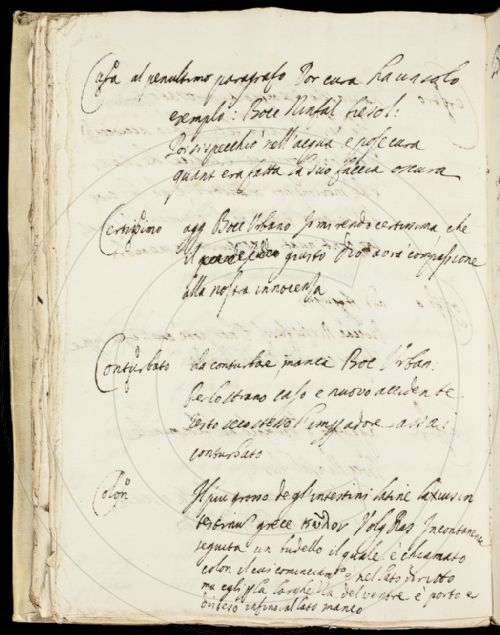 Cura al penultimo paragrafo Por cura ha un solo
exemplo: Bocc Ninfal Fiesol:
Poi si specchiò nell'acqua e pose cura
quant era fatta la suo faccia oscura
Certissimo agg Bocc Urbano Io mi rendo certissima che
il giusto Dio avrà compassione
alla nostra innocenza
Conturbato ha conturbae manca Boc Urban:
per lo strano caso e nuovo accidente
resto seco stesso l'impadore assai
conturbato
Colon Il piu grosso degl'intestini latine laxius in
testinu grece κωλον Volg Ras Incontanente
seguita un budello il quale è chiamato
colon il cui cominciamto e nel lato diritto
ma egli p la larghezza del ventre è porto e
disteso infino al lato manco